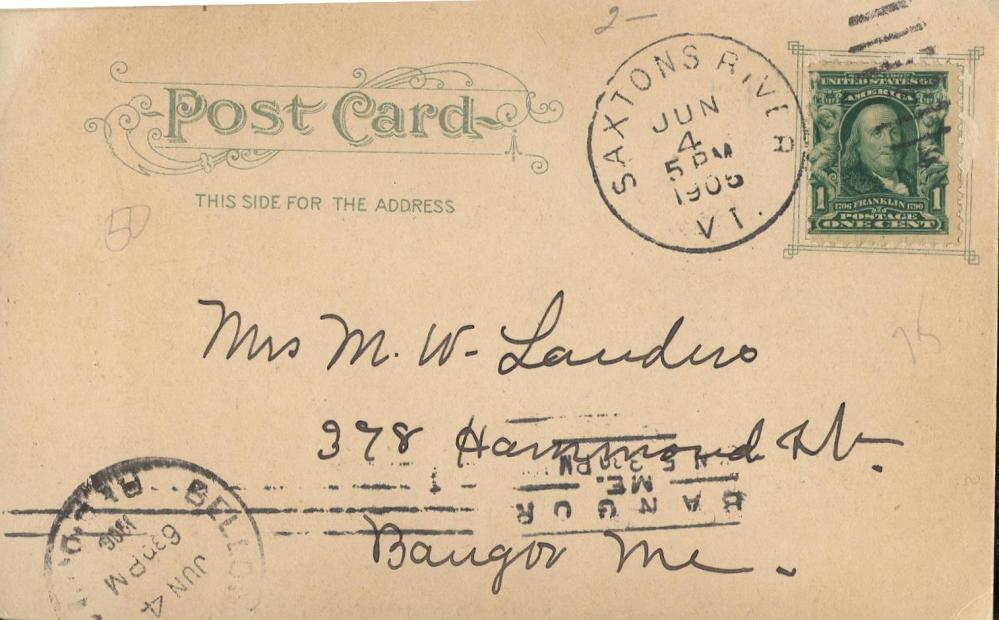 2-
Post Card
THIS SIDE FOR THE ADDRESS
SAXTONS RIVER
JUN
4
5 PM
1906
VT.
UNITED STATES OF
AMERICA
1 1706 FRANKLIN 1790 1
POSTAGE
ONE CENT
50
75
Mrs M. W. Landers
378 Hammond St.
Bangor Me.
BANGOR
ME.
5 3 PM
BELLO
JUN 4
630 PM
1906